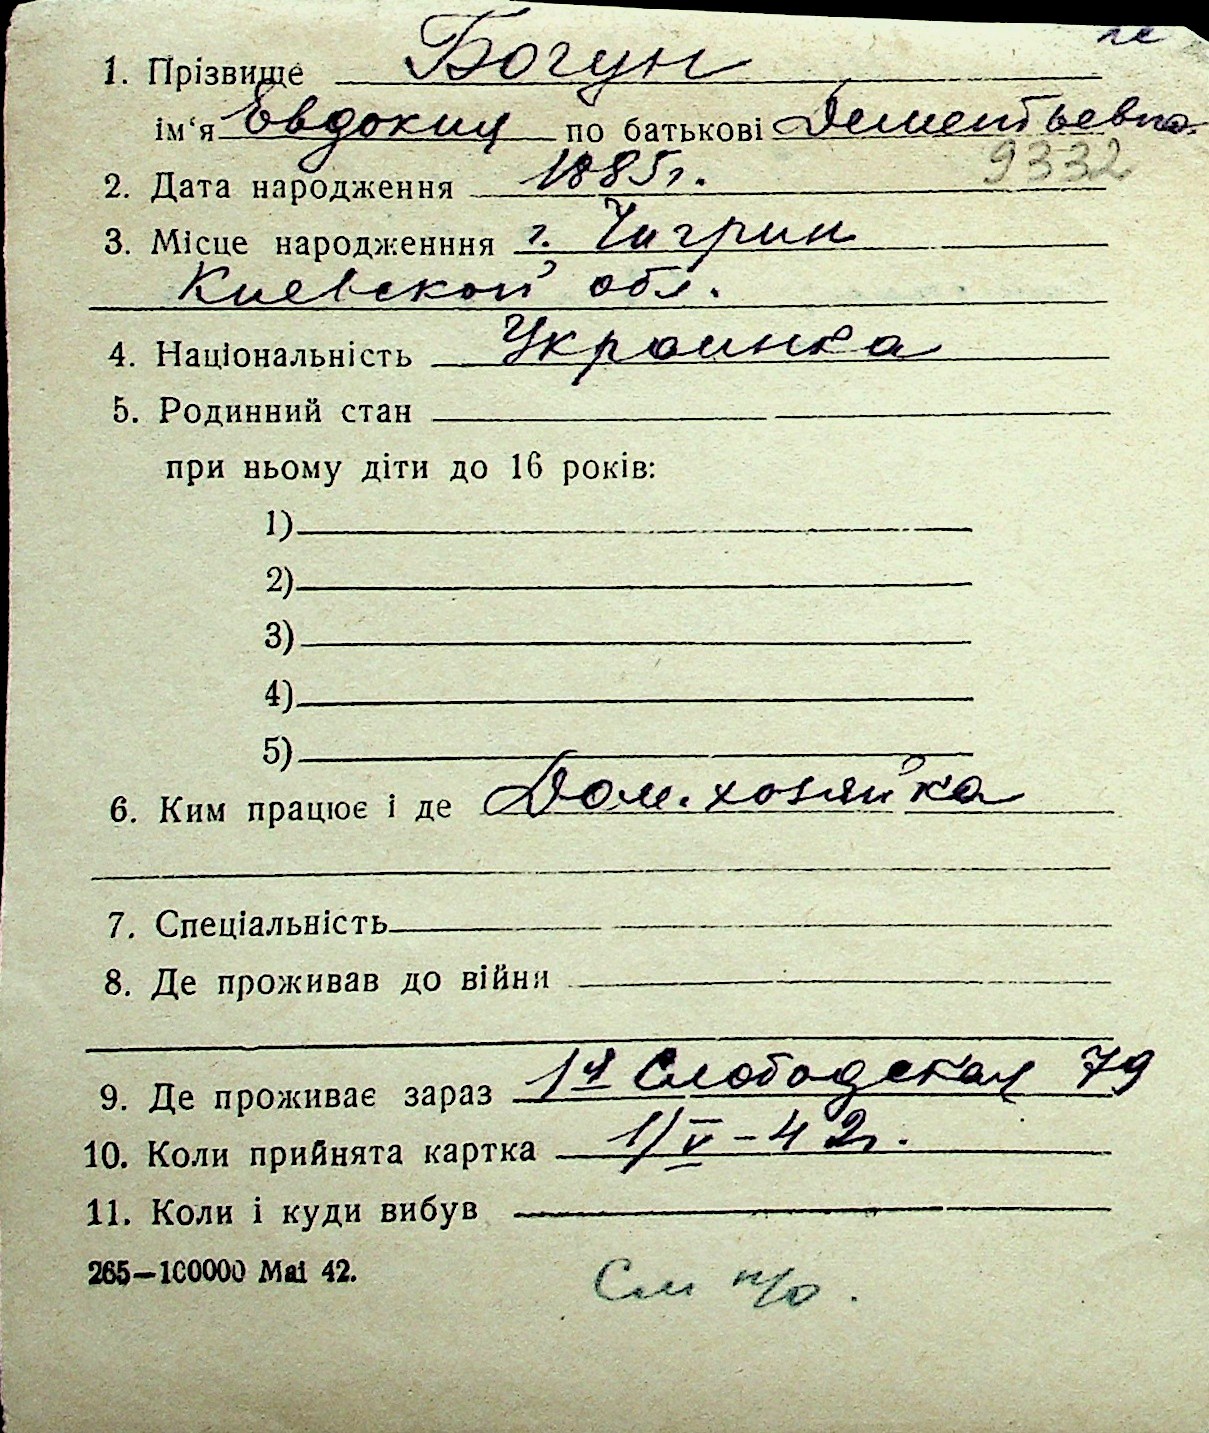 1. Прізвище Богун
ім‘я Евдокия по батькові Дементьевна
2. Дата народження 1885г. 9332
3. Місце народженння г. Чигрин
Киевской обл.
4. Національність Украинка
5. Родинний стан
при ньому діти до 16 років:
1)
2)
3)
4)
5)
6. Ким працює і де Дом. хозяйка
7. Спеціальність
8. Де проживав до війни
9. Де проживає зараз 1я Слободская 79
10. Коли прийнята картка 1/V-42г.
11. Коли і куди вибув
265—100000 Mai 42.
См н/о.